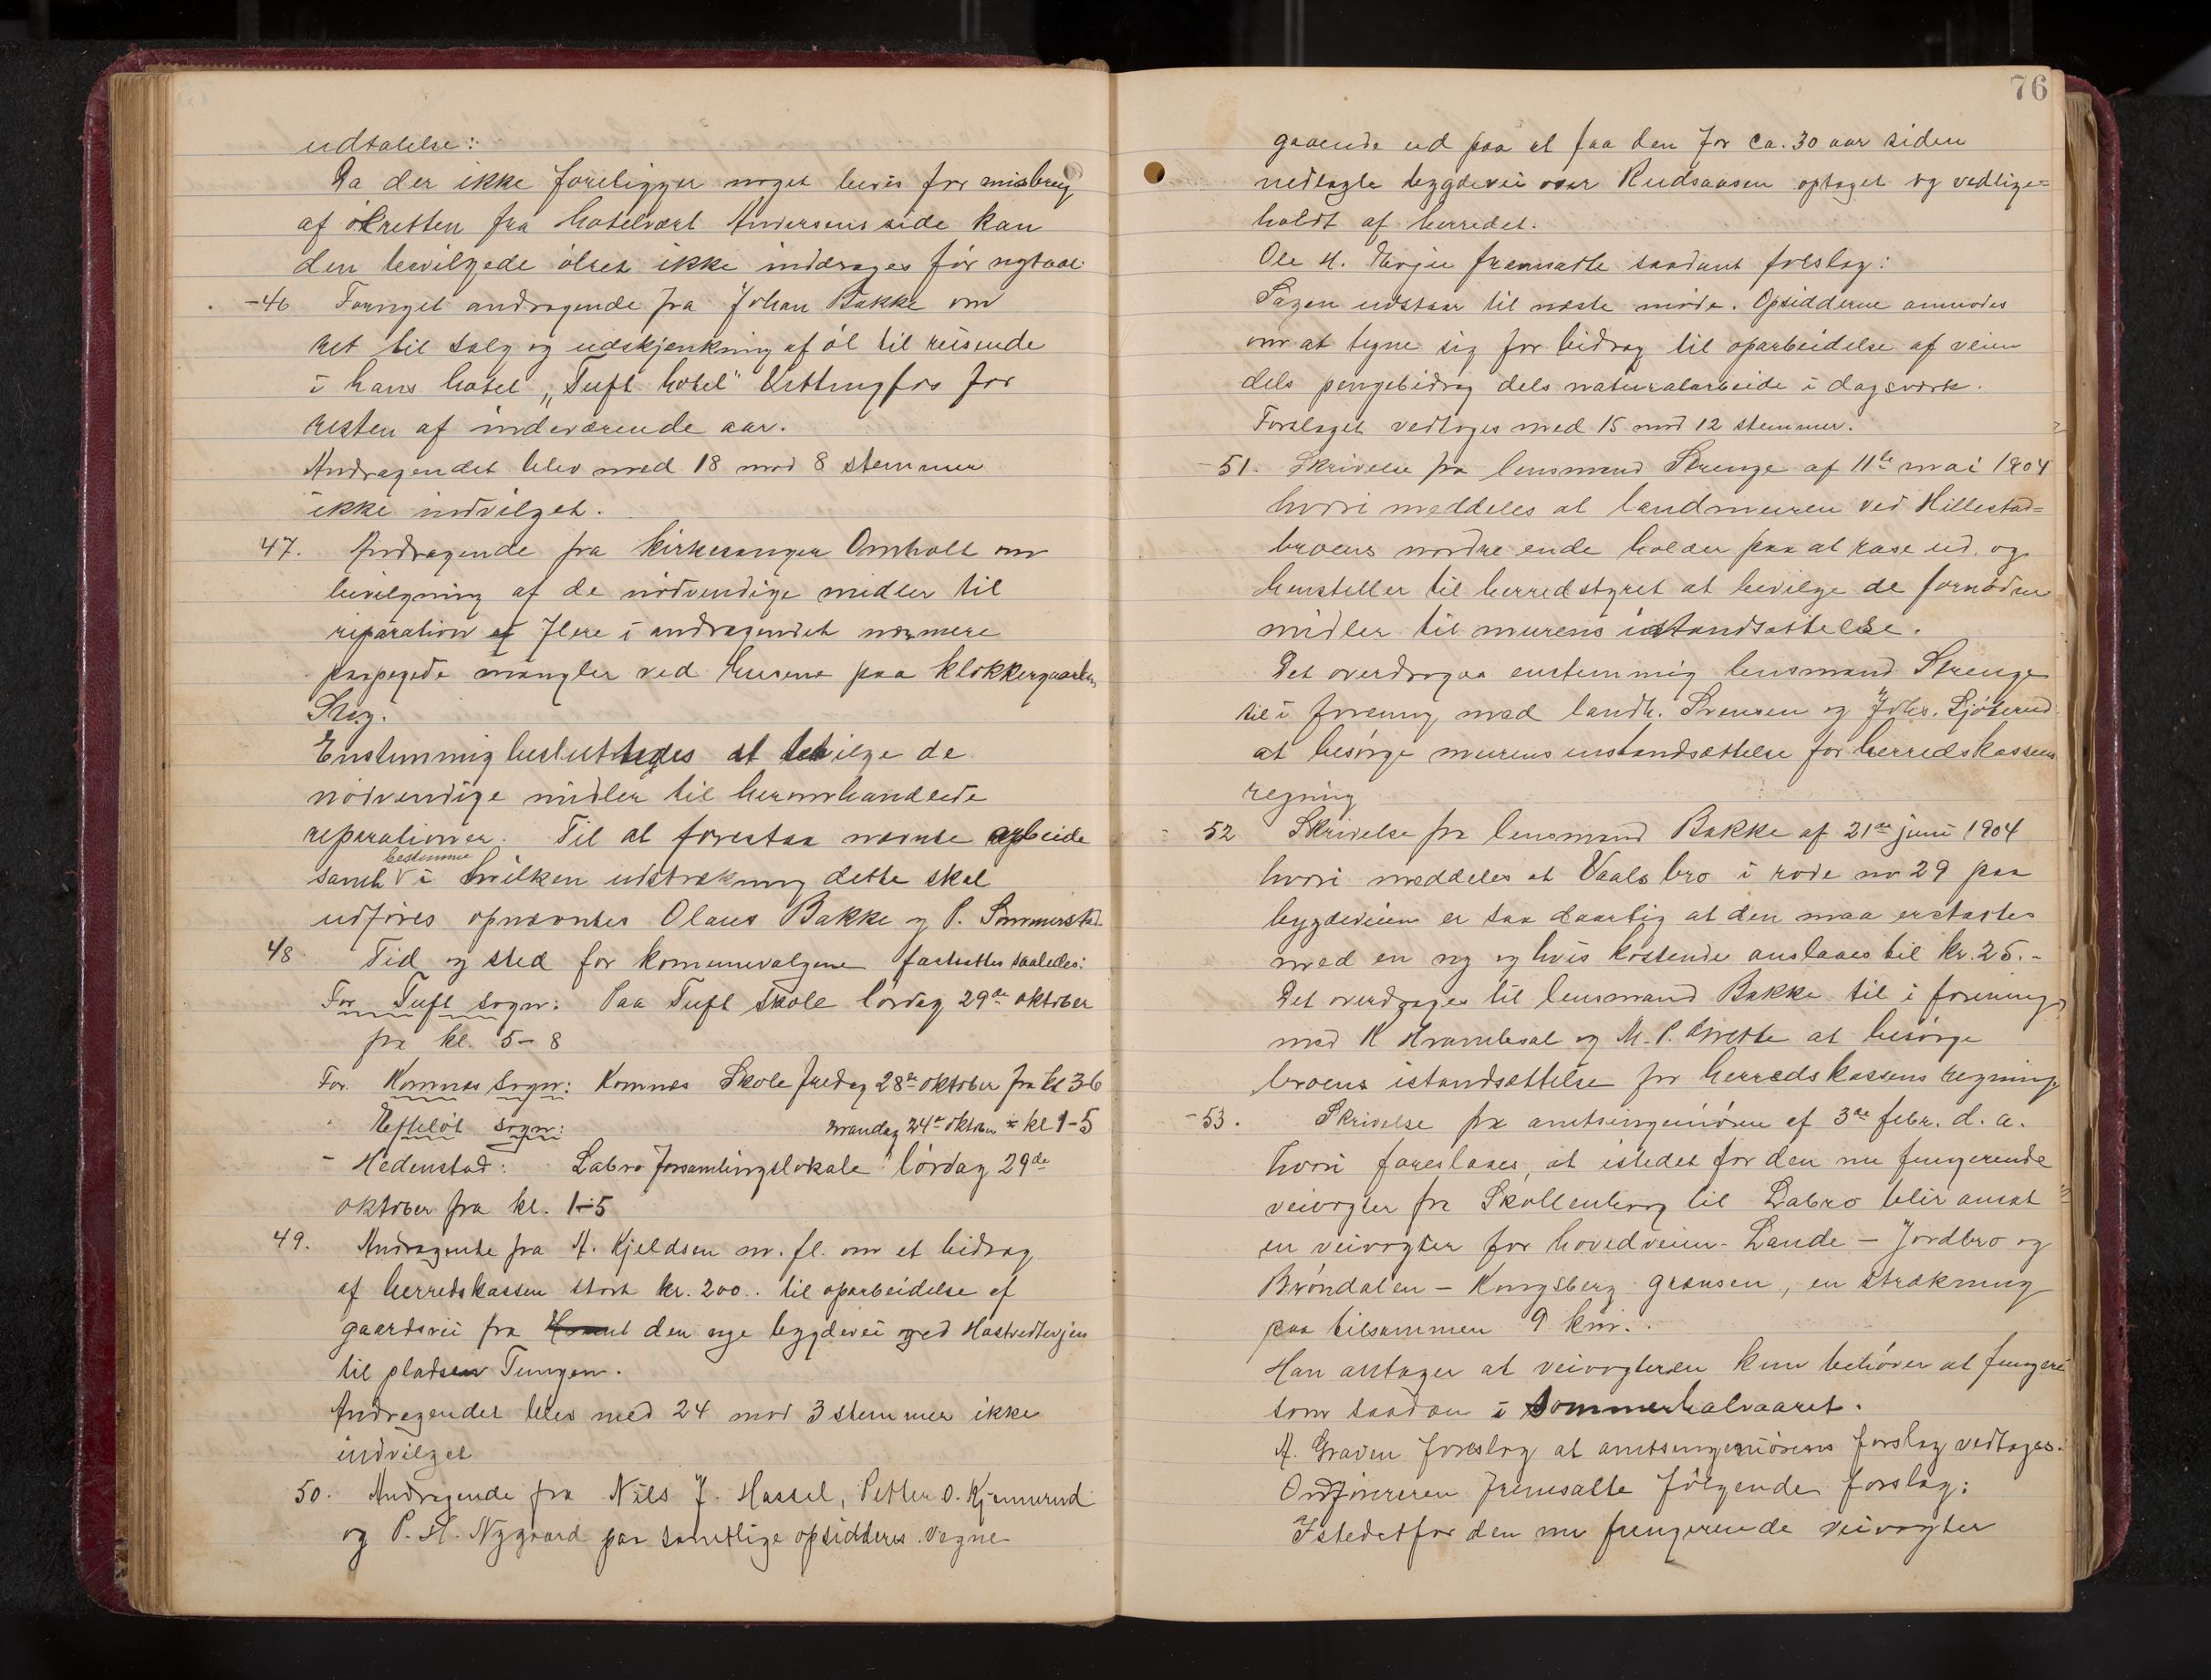 udtalelse:
Da der ikke foreligger noget bevis for misbrug
af ølretten fra hotelvært Andersens side kan
den bevilgede ølret ikke inddrages før nytaar
-46 Fornyet andragende fra Johan Bakke om
ret til salg og udskjenkning af øl til reisende
i hans hotel "Tuft hotel" Vittingfos for
resten af indeværende aar.
Andragendet blev med 18 mod 8 stemmer
ikke indvilget.
47. Andragende fra kirkesanger Omholt om
bevilgning af de nødvendige midler til
reparation af flere i andragendet nærmere
paapegede mangler ved husene paa klokkergaarden
Steg.
Enstemmig besluttedes at bevilge de
nødvendige midler til heromhandlede
reperationer. Til at forestaa nævnte arbeide
samt bestemme i hvilken udstrækning dette skal
udføres opnævntes Olaus Bakke og P. Simmerstad
48 Tid og sted for komunevalgene fastsattes saaledes:
For Tuft sogn: Paa Tuft skole lørdag 29de oktober
fra kl. 5-8
For Komnæs sogn: Komnæs Skole fredag 28de oktober fra kl 3-6
" Efteløt sogn: mandag 24de oktober " kl 1-5
- Hedenstad: Labro forsamlingslokale lørdag 29de
oktober fra kl. 1-5
49. Andragende fra A. Kjeldsen m. fl. om et bidrag
af herredskassen stort kr. 200.. til oparbeidelse af
gaardsvei fra den nye bygdevei ved Hostvedtevjen
til pladsen Tungen.
Andragendet blev med 24 mod 3 stemmer ikke
indvilget
50. Andragende fra Nils J. Hassel, Petter O. Kjennerud
og P. H. Nygaard paa samtlige opsidderes vegne
76
gaaende ud paa at faa den for ca. 30 aar siden
nedlagte bygdevei over Rudsaasen optaget og vedlige=
holdt af herredet.
Ole H. Evju fremsatte saadant forslag:
Sagen udstaar til næste møde. Opsidderne anmodes
om at tegne sig for bidrag til oparbeidelse af veien
dels pengebidrag dels naturalarbeide i dagsværk.
Forslaget vedtoges med 15 mod 12 stemmer.
-51. Skrivelse fra lensmand Strenge af 11te mai 1904
hvori meddeles at landmuren ved Hillestad=
broens nordre ende holder paa at rase ud. og
henstiller til herredstyret at bevilge de fornødne
midler til murens istandsættelse.
Det overdroges enstemmig lensmand Strenge
til i forening med landh. Svensen og Johs. Sjøserud
at besørge murens instandsættelse for herredskassens
regning
52 Skrivelse fra lensmand Bakke af 21de juni 1904
hvori meddeles at Vaals bro i rode no 29 paa
bygdeveien er saa daarlig at den maa erstattes
med en ny og hvis kostende anslaaes til kr. 25.-
Det overdrages til lensmand Bakke til i forening
med K Hrambesal og M. P. at besørge
broens istandsættelse for herredskassens regning.
-53. Skrivelse fra amtsingeniøren af 3de febr. d. a.
hvori foreslaaes, at istedet for den nu fungerende
veivogter fra Skollenborg til Labro blir ansat
en veivogter for hovedveien Lande - Jordbro og
Brøndalen - Kongsberg grænsen, en strækning
paa tilsammen 9 km.
Han antager at veivogteren kun behøver at fungere
som saadan i sommerhalvaaret.
A. Graven foreslog at amtsingeniørens forslag vedtages.
Ordføreren fremsatte følgende forslag:
Istedetfor den nu fungerende veivogter